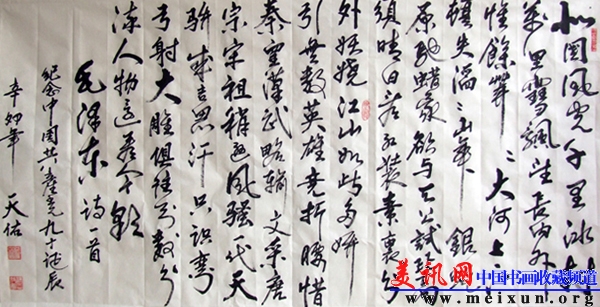 北国风光千里冰封
万里雪飘望长城内外
惟餘莽々大河上下
顿失滔々山舞银蛇
原驰蜡象欲与天公试比高
须晴日看红装素裹分
外妖娆江山如此多娇
引無数英雄竞折腰惜
秦皇漢武略输文采唐
宗宋祖稍逊风骚一代天
骄成吉思汗只识弯
弓射大雕俱往矣数风
流人物还看今朝
毛泽东诗一首
纪念中国共产党九十诞辰
辛卯年 天佑
美讯网 中国书画收藏频道
www.meixun.org